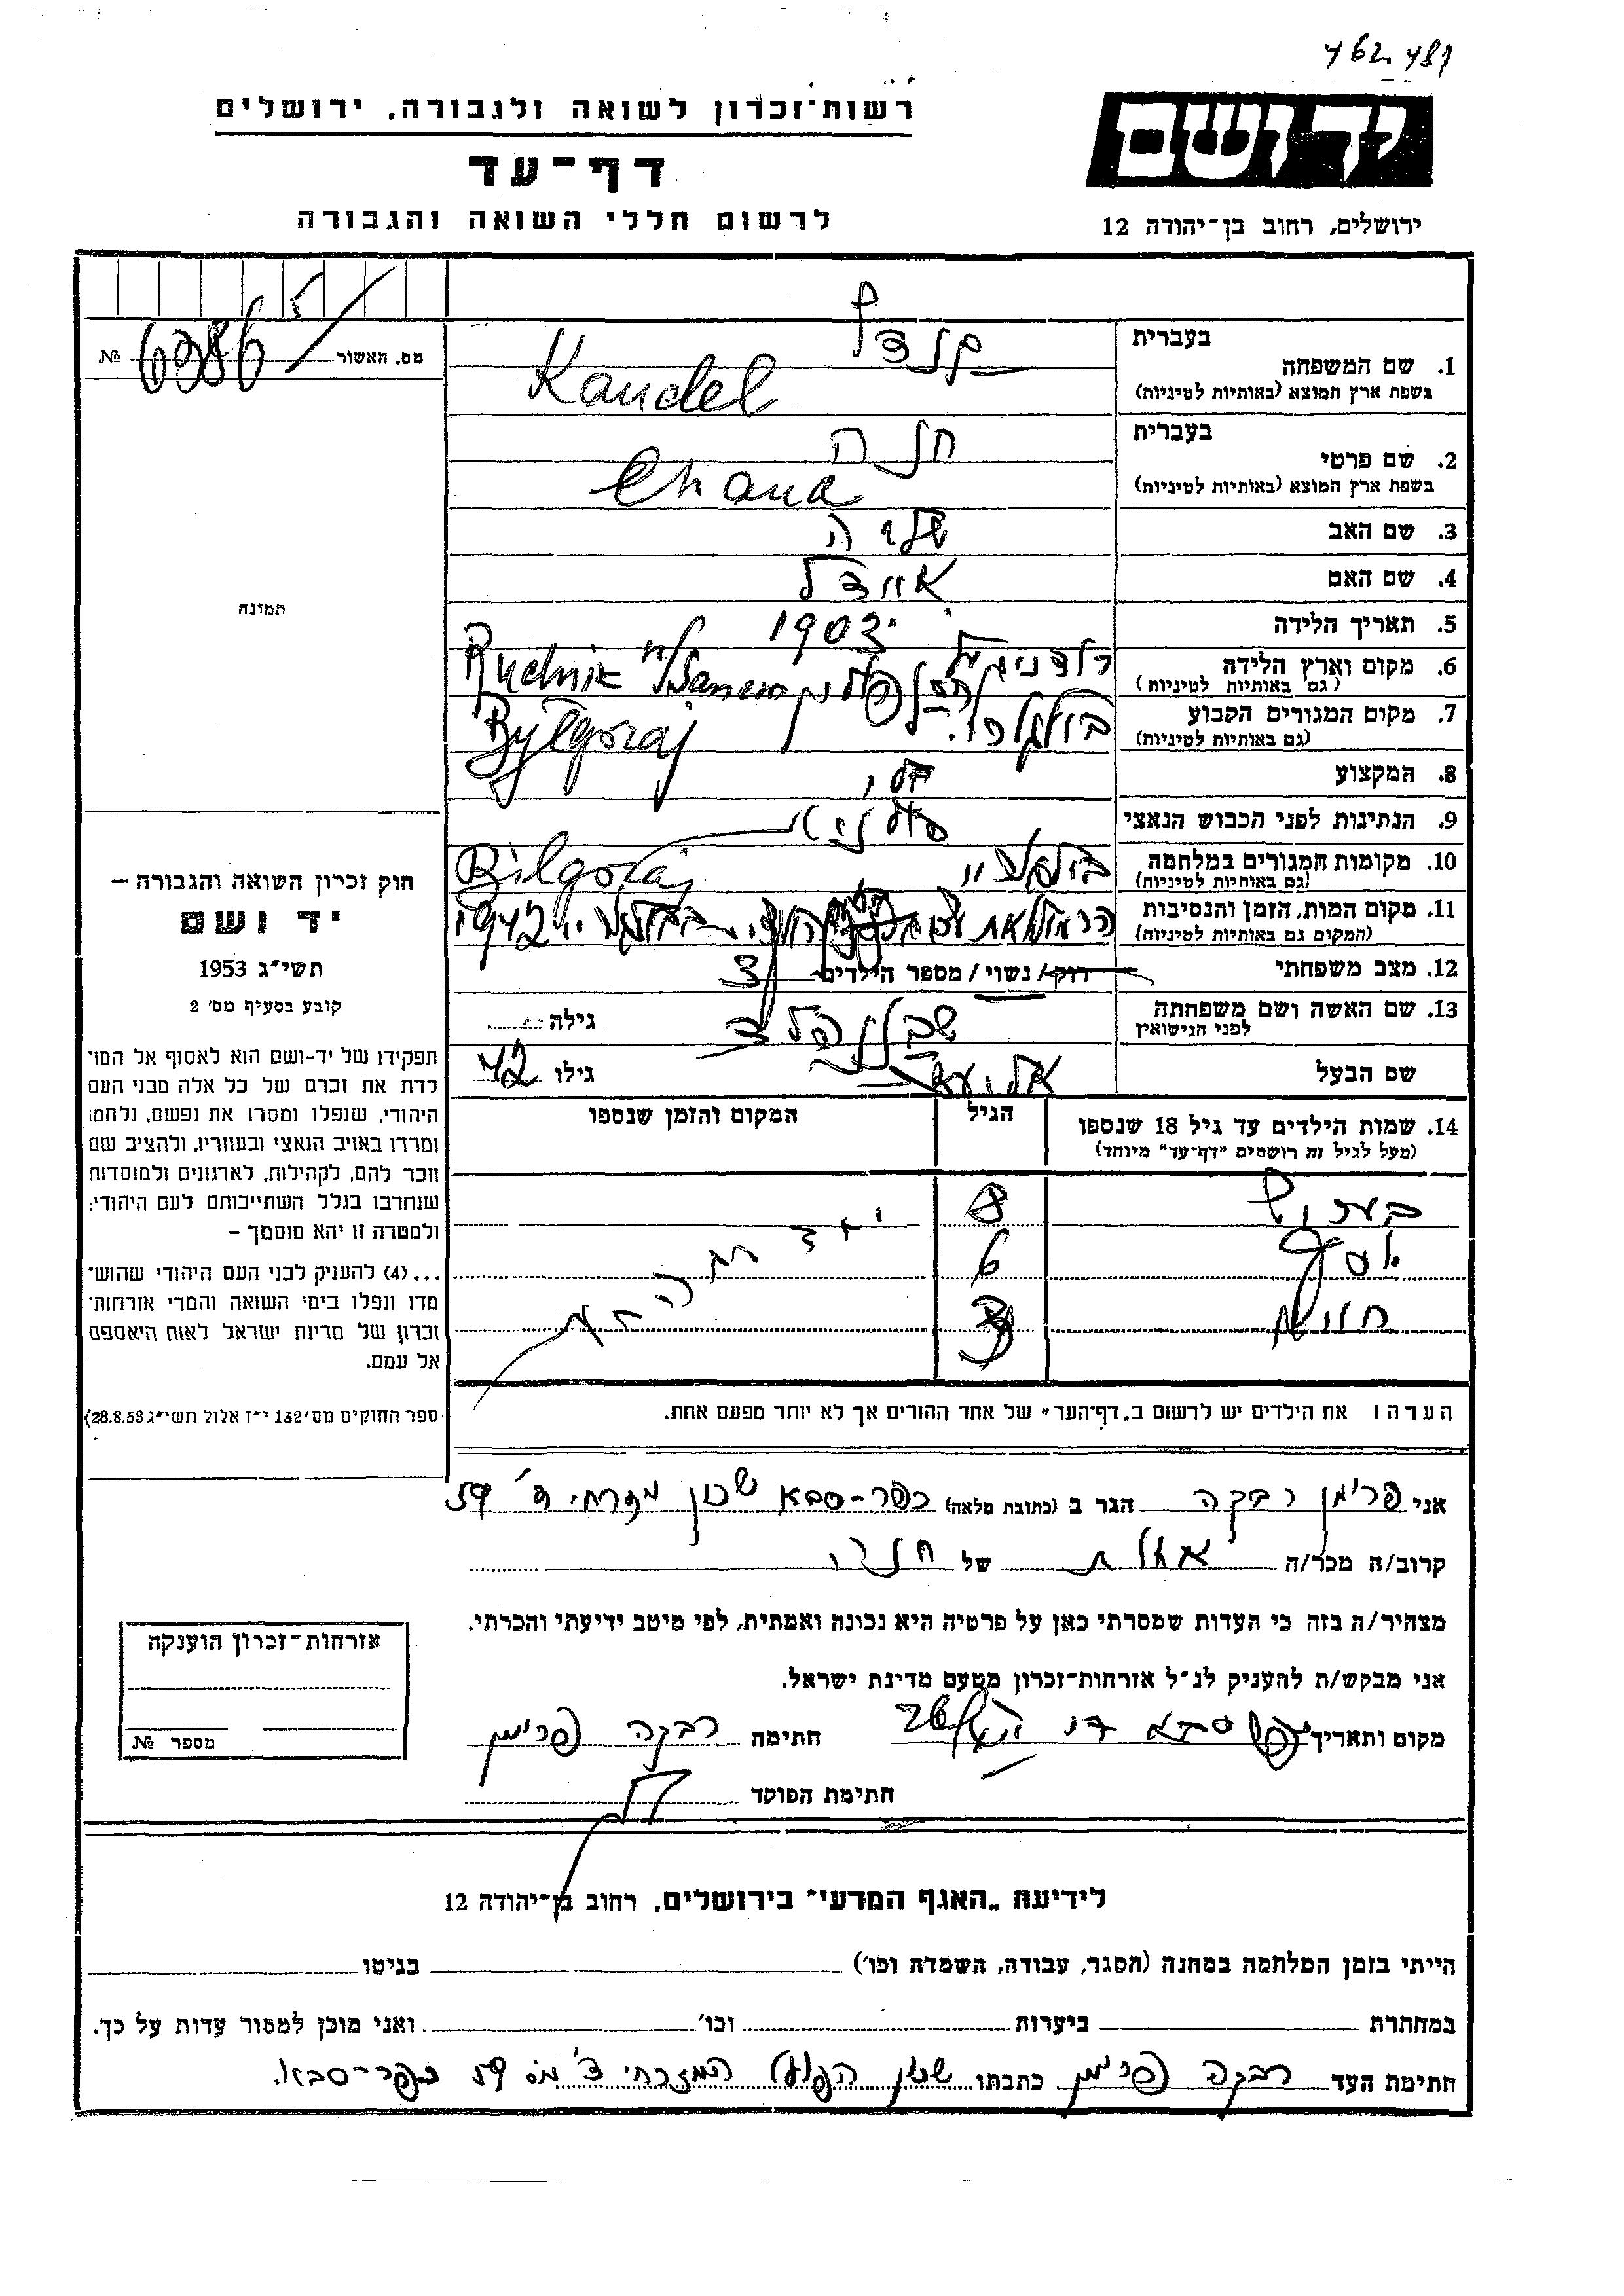 רשות־זכרון לשואה ולגבורה. ירושלים
דף־עד
לרשום חללי השואה והגבורה
יד ושם
ירושלים, רחוב בן־יהודה 12
מס. האשור № 6986
תמונה
חוק זכרון השואה והגבורה —
יד ושם
תשי״ג 1953
קובע בסעיף מס׳ 2
תפקידו של יד-ושם הוא לאסוף אל המו־
לדת את זכרם של כל אלה מבני העם
היהודי, שנפלו ומסרו את נפשם, נלחמו
ומרדו באויב הנאצי ובעוזריו, ולהציב שם
וזכר להם, לקהילות, לארגונים ולמוסדות
שנחרבו בגלל השתייכותם לעם היהודי:
ולמטרה זו יהא מוסמך —
...(4) להעניק לבני העם היהודי שהוש־
מדו ונפלו בימי השואה והמרי אזרחות־
זכרון של מדינת ישראל לאות היאספם
אל עמם.
ספר החוקים מס׳ 132 י״ז אלול תשי״ג 28.8.53)
1. שם המשפחה
בעברית קנדל
בשפת ארץ המוצא (באותיות לטיניות) Kandel
2. שם פרטי
בעברית חנה
בשפת ארץ המוצא (באותיות לטיניות) Chana
3. שם האב
4. שם האם איידל
5. תאריך הלידה 1903
6. מקום וארץ הלידה
(גם באותיות לטיניות) Rudnik n/Sanem
7. מקום המגורים הקבוע
(גם באותיות לטיניות) Bylgoraj
8. המקצוע
9. הנתינות לפני הכבוש הנאצי
10. מקומות המגורים במלחמה
(גם באותיות לטיניות) Bilgoraj
11. מקום המות, הזמן והנסיבות
(המקום גם באותיות לטיניות) 1942
12. מצב משפחתי רווק / נשוי / מספר הילדים 3
13. שם האשה ושם משפחתה
לפני הנישואין גילה
שם הבעל גילו 42
14. שמות הילדים עד גיל 18 שנספו
(מעל לגיל זה רושמים "דף־עד" מיוחד)
הגיל
המקום והזמן שנספו
8
6
3
הערה: את הילדים יש לרשום ב„דף־העד״ של אחד ההורים אך לא יותר מפעם אחת.
אני פרימן רבקה הגר ב (כתובת מלאה) כפר-סבא שכון מזרחי 59
קרוב/ה מכר/ה אחות של חנה
מצהיר/ה בזה כי העדות שמסרתי כאן על פרטיה היא נכונה ואמתית, לפי מיטב ידיעתי והכרתי.
אני מבקש/ת להעניק לנ״ל אזרחות־זכרון מטעם מדינת ישראל.
מקום ותאריך כפר סבא חתימה רבקה פרימן
חתימת הפוקד
אזרחות־זכרון הוענקה
מספר №
לידיעת „האגף המדעי״ בירושלים, רחוב בן־יהודה 12
הייתי בזמן המלחמה במחנה (הסגר, עבודה, השמדה וכו׳) בגיטו
במחתרת ביערות וכו׳ ואני מוכן למסור עדות על כך.
חתימת העד רבקה פרימן כתבתו שכון הפועל המזרחי 59 כפר-סבא.